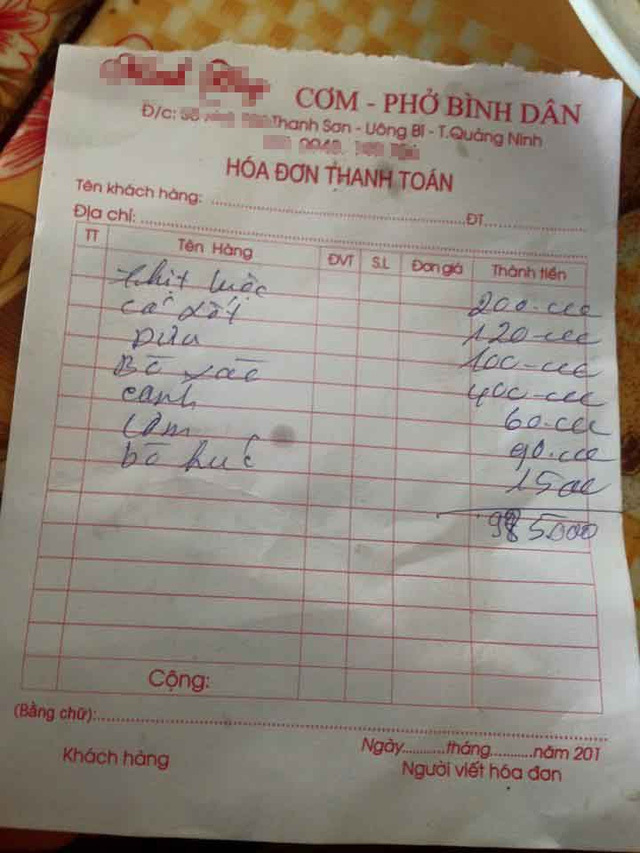 CƠM - PHỞ BÌNH DÂN
Đ/c: Thanh Sơn - Uông Bí - T.Quảng Ninh
HÓA ĐƠN THANH TOÁN
Tên khách hàng: ĐT
Địa chỉ:
TT Tên Hàng ĐVT S.L Đơn giá Thành tiền
thịt luộc 200.000
cá 120.000
Dưa 100.000
Bò xào 400.000
canh 60.000
Cơm 90.000
bò húc 15000
985000
Cộng:
(Bằng chữ):
Ngày tháng năm 201
Khách hàng Người viết hóa đơn